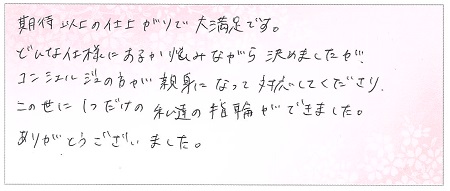 期待以上の仕上がりで大満足です。
どんな仕様にあるか悩みながら決めましたが、
コンシェルジュの方が親身になって対応してくださり、
この世に1つだけの私達の指輪ができました。
ありがとうございました。